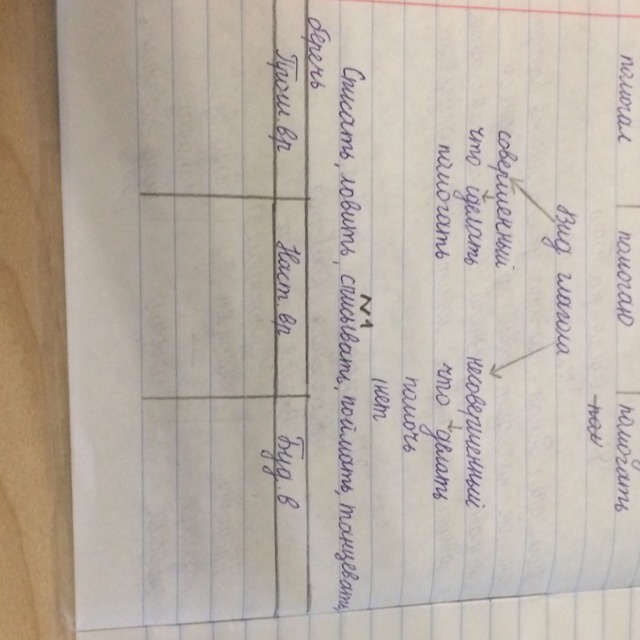 помогал помогаю помогать
Вид глагола
совершенный несовершенный
что сделать что делать
помогать
помочь
нет
N1
Списать, ловить, списывать, поймать, танцевать,
Прош вр Наст вр Буд в